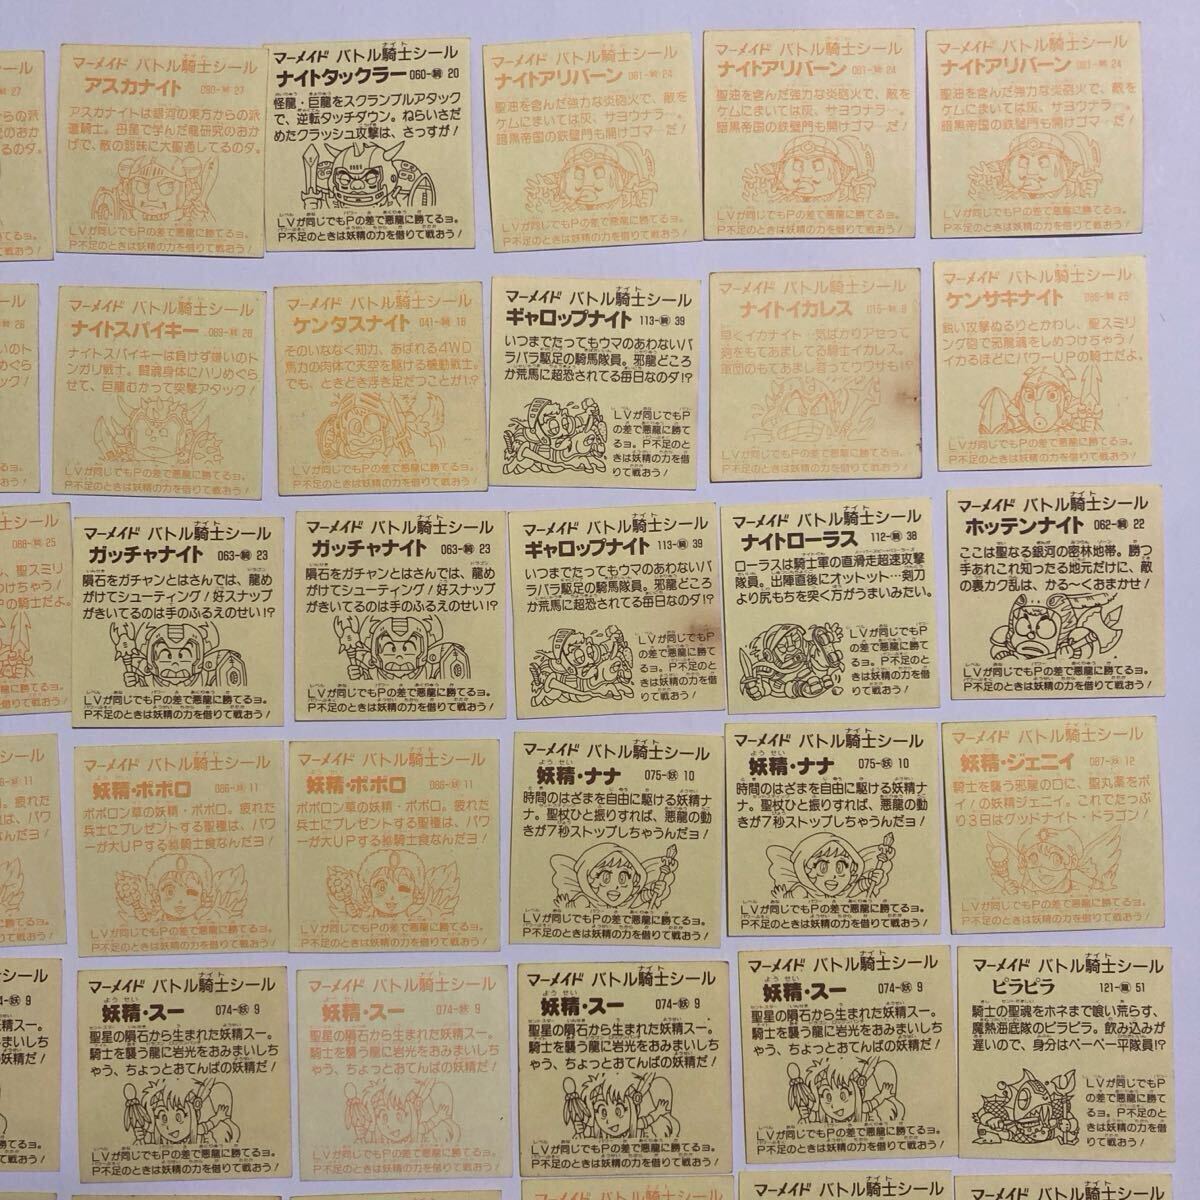 マーメイド バトル騎士シール
アスカナイト
アスカナイトは銀河の東方からの派
遣騎士。母星で学んだ龍研究のおか
げで、敵の弱味に大聖通してるのダ。
LVが同じでもPの差で悪龍に勝てるヨ。
P不足のときは妖精の力を借りて戦おう!
マーメイド バトル騎士シール
ナイトタックラー 060-騎 20
怪龍・巨龍をスクランブルアタック
で、逆転タッチダウン。ねらいさだ
めたクラッシュ攻撃は、さっすが!
LVが同じでもPの差で悪龍に勝てるヨ。
P不足のときは妖精の力を借りて戦おう!
マーメイド バトル騎士シール
ナイトアリババーン 081-騎 24
聖油を含んだ強力な炎砲火で、敵を
ケムにまいては灰、サヨウナラー。
暗黒帝国の鉄壁門も開けゴマーだ!
LVが同じでもPの差で悪龍に勝てるヨ。
P不足のときは妖精の力を借りて戦おう!
マーメイド バトル騎士シール
ナイトアリババーン 081-騎 24
聖油を含んだ強力な炎砲火で、敵を
ケムにまいては灰、サヨウナラー。
暗黒帝国の鉄壁門も開けゴマーだ!
LVが同じでもPの差で悪龍に勝てるヨ。
P不足のときは妖精の力を借りて戦おう!
マーメイド バトル騎士シール
ナイトアリババーン 081-騎 24
聖油を含んだ強力な炎砲火で、敵を
ケムにまいては灰、サヨウナラー。
暗黒帝国の鉄壁門も開けゴマーだ!
LVが同じでもPの差で悪龍に勝てるヨ。
P不足のときは妖精の力を借りて戦おう!
マーメイド バトル騎士シール
ナイトスパイキー
ナイトスパイキーは負けず嫌いのト
ンガリ戦士。闘魂身体にハリめぐら
せて、巨龍むかって突撃アタック!
LVが同じでもPの差で悪龍に勝てるヨ。
P不足のときは妖精の力を借りて戦おう!
マーメイド バトル騎士シール
ケンタスナイト 041-騎 18
そのいななく知力、あばれる4WD
馬力の肉体で天空を駆ける機動戦士。
でも、ときどき浮き足だつことが!?
LVが同じでもPの差で悪龍に勝てるヨ。
P不足のときは妖精の力を借りて戦おう!
マーメイド バトル騎士シール
ギャロップナイト 113-騎 39
いつまでたってもウマのあわないバ
ラバラ駆足の騎馬隊員。邪龍どころ
か荒馬に超恐されてる毎日なのダ!?
LVが同じでもP
の差で悪龍に勝て
るヨ。P不足のと
きは妖精の力を借
りて戦おう!
マーメイド バトル騎士シール
ナイトイカレス
早くイカナイト、気ばかりアセって
砲をもてあましてる騎士イカレス。
軍団のもてあまし者ってウワサも!?
LVが同じでもPの差で悪龍に勝てるヨ。
P不足のときは妖精の力を借りて戦おう!
マーメイド バトル騎士シール
ケンサキナイト
鋭い攻撃ぬるりとかわし、聖スミリ
ング砲で邪龍魂をしめつけちゃう!
LVが同じでもPの差で悪龍に勝てるヨ。
P不足のときは妖精の力を借りて戦おう!
マーメイド バトル騎士シール
ガッチャナイト 063-騎 23
隕石をガチャンとはさんでは、龍め
がけてシューティング!好スナップ
がきいてるのは手のふるえのせい!?
LVが同じでもPの差で悪龍に勝てるヨ。
P不足のときは妖精の力を借りて戦おう!
マーメイド バトル騎士シール
ガッチャナイト 063-騎 23
隕石をガチャンとはさんでは、龍め
がけてシューティング!好スナップ
がきいてるのは手のふるえのせい!?
LVが同じでもPの差で悪龍に勝てるヨ。
P不足のときは妖精の力を借りて戦おう!
マーメイド バトル騎士シール
ギャロップナイト 113-騎 39
いつまでたってもウマのあわないバ
ラバラ駆足の騎馬隊員。邪龍どころ
か荒馬に超恐されてる毎日なのダ!?
LVが同じでもP
の差で悪龍に勝て
るヨ。P不足のと
きは妖精の力を借
りて戦おう!
マーメイド バトル騎士シール
ナイトローラス 112-騎 38
ローラスは騎士軍の直滑走超速攻撃
隊員。出陣直後にオットット…剣刀
より尻もちを突く方がうまいみたい。
LVが同じでもP
の差で悪龍に勝て
るヨ。P不足のと
きは妖精の力を借
りて戦おう!
マーメイド バトル騎士シール
ホッテンナイト 062-騎 22
ここは聖なる銀河の密林地帯。勝つ
手あれこれ知ったる地元だけに、敵
の裏カク乱は、かる〜くおまかせ!
LVが同じでもPの差で悪龍に勝てるヨ。
P不足のときは妖精の力を借りて戦おう!
マーメイド バトル騎士シール
妖精・ポポロ 086-妖 11
ポポロン草の妖精・ポポロ。疲れた
兵士にプレゼントする聖種は、パワ
ーが大UPする絵騎士食なんだヨ!
LVが同じでもPの差で悪龍に勝てるヨ。
P不足のときは妖精の力を借りて戦おう!
マーメイド バトル騎士シール
妖精・ポポロ 086-妖 11
ポポロン草の妖精・ポポロ。疲れた
兵士にプレゼントする聖種は、パワ
ーが大UPする絵騎士食なんだヨ!
LVが同じでもPの差で悪龍に勝てるヨ。
P不足のときは妖精の力を借りて戦おう!
マーメイド バトル騎士シール
妖精・ナナ 075-妖 10
時間のはざまを自由に駆ける妖精ナ
ナ。聖杖ひと振りすれば、悪龍の動
きが7秒ストップしちゃうんだヨ!
LVが同じでもPの差で悪龍に勝てるヨ。
P不足のときは妖精の力を借りて戦おう!
マーメイド バトル騎士シール
妖精・ナナ 075-妖 10
時間のはざまを自由に駆ける妖精ナ
ナ。聖杖ひと振りすれば、悪龍の動
きが7秒ストップしちゃうんだヨ!
LVが同じでもPの差で悪龍に勝てるヨ。
P不足のときは妖精の力を借りて戦おう!
マーメイド バトル騎士シール
妖精・ジェニイ 087-妖 12
騎士を襲う邪龍の口に、聖丸薬をポ
イ!の妖精ジェニイ。これでたっぷ
り3日はグッドナイト・ドラゴン!
LVが同じでもPの差で悪龍に勝てるヨ。
P不足のときは妖精の力を借りて戦おう!
マーメイド バトル騎士シール
妖精・スー 074-妖 9
聖星の隕石から生まれた妖精スー。
騎士を襲う龍に岩光をおみまいしち
ゃう、ちょっとおてんばの妖精だ!
LVが同じでもPの差で悪龍に勝てるヨ。
P不足のときは妖精の力を借りて戦おう!
マーメイド バトル騎士シール
妖精・スー 074-妖 9
聖星の隕石から生まれた妖精スー。
騎士を襲う龍に岩光をおみまいしち
ゃう、ちょっとおてんばの妖精だ!
LVが同じでもPの差で悪龍に勝てるヨ。
P不足のときは妖精の力を借りて戦おう!
マーメイド バトル騎士シール
妖精・スー 074-妖 9
聖星の隕石から生まれた妖精スー。
騎士を襲う龍に岩光をおみまいしち
ゃう、ちょっとおてんばの妖精だ!
LVが同じでもPの差で悪龍に勝てるヨ。
P不足のときは妖精の力を借りて戦おう!
マーメイド バトル騎士シール
妖精・スー 074-妖 9
聖星の隕石から生まれた妖精スー。
騎士を襲う龍に岩光をおみまいしち
ゃう、ちょっとおてんばの妖精だ!
LVが同じでもPの差で悪龍に勝てるヨ。
P不足のときは妖精の力を借りて戦おう!
マーメイド バトル騎士シール
ピラピラ 121-龍 51
騎士の聖魂をホネまで喰い荒らす、
魔熱海底隊のピラピラ。飲み込みが
遅いので、身分はペーペー平隊員!?
LVが同じでもP
の差で悪龍に勝て
るヨ。P不足のと
きは妖精の力を借
りて戦おう!
マーメイド バトル騎士シール
マーメイド バトル騎士シール
マーメイド バトル騎士シール